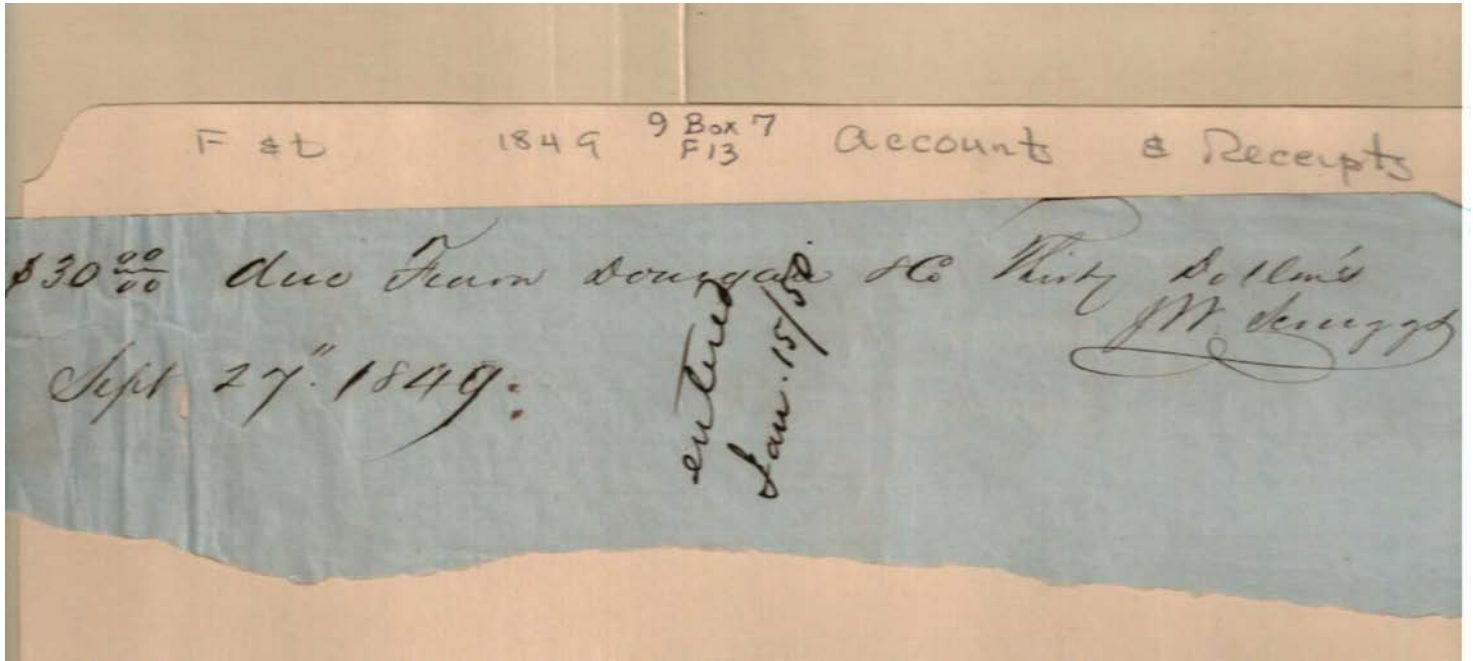 F & D 1849 9 Box 7 Account & Receipts
F13
$30 00/00 due Fearn Donegan & Co Thirty Dollars
J W. Scruggs
Sept 27". 1849.
entered
Jan. 15/50.